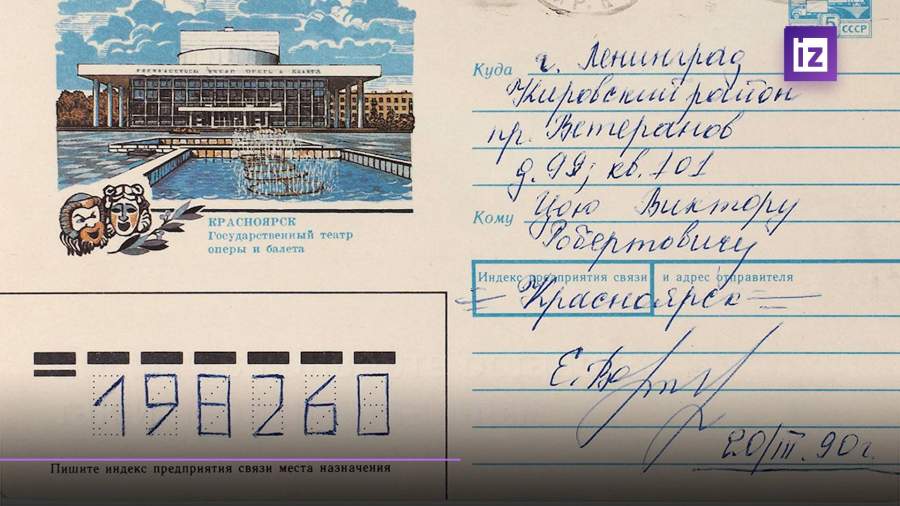 5
СССР
iz
Куда г. Ленинград
Кировский район
пр. Ветеранов
д. 99; кв. 101
Кому Цою Виктору
Робертовичу
КРАСНОЯРСК
Государственный театр
оперы и балета
Индекс предприятия связи и адрес отправителя
= Красноярск =
198260
20/III. 90 г.
Пишите индекс предприятия связи места назначения